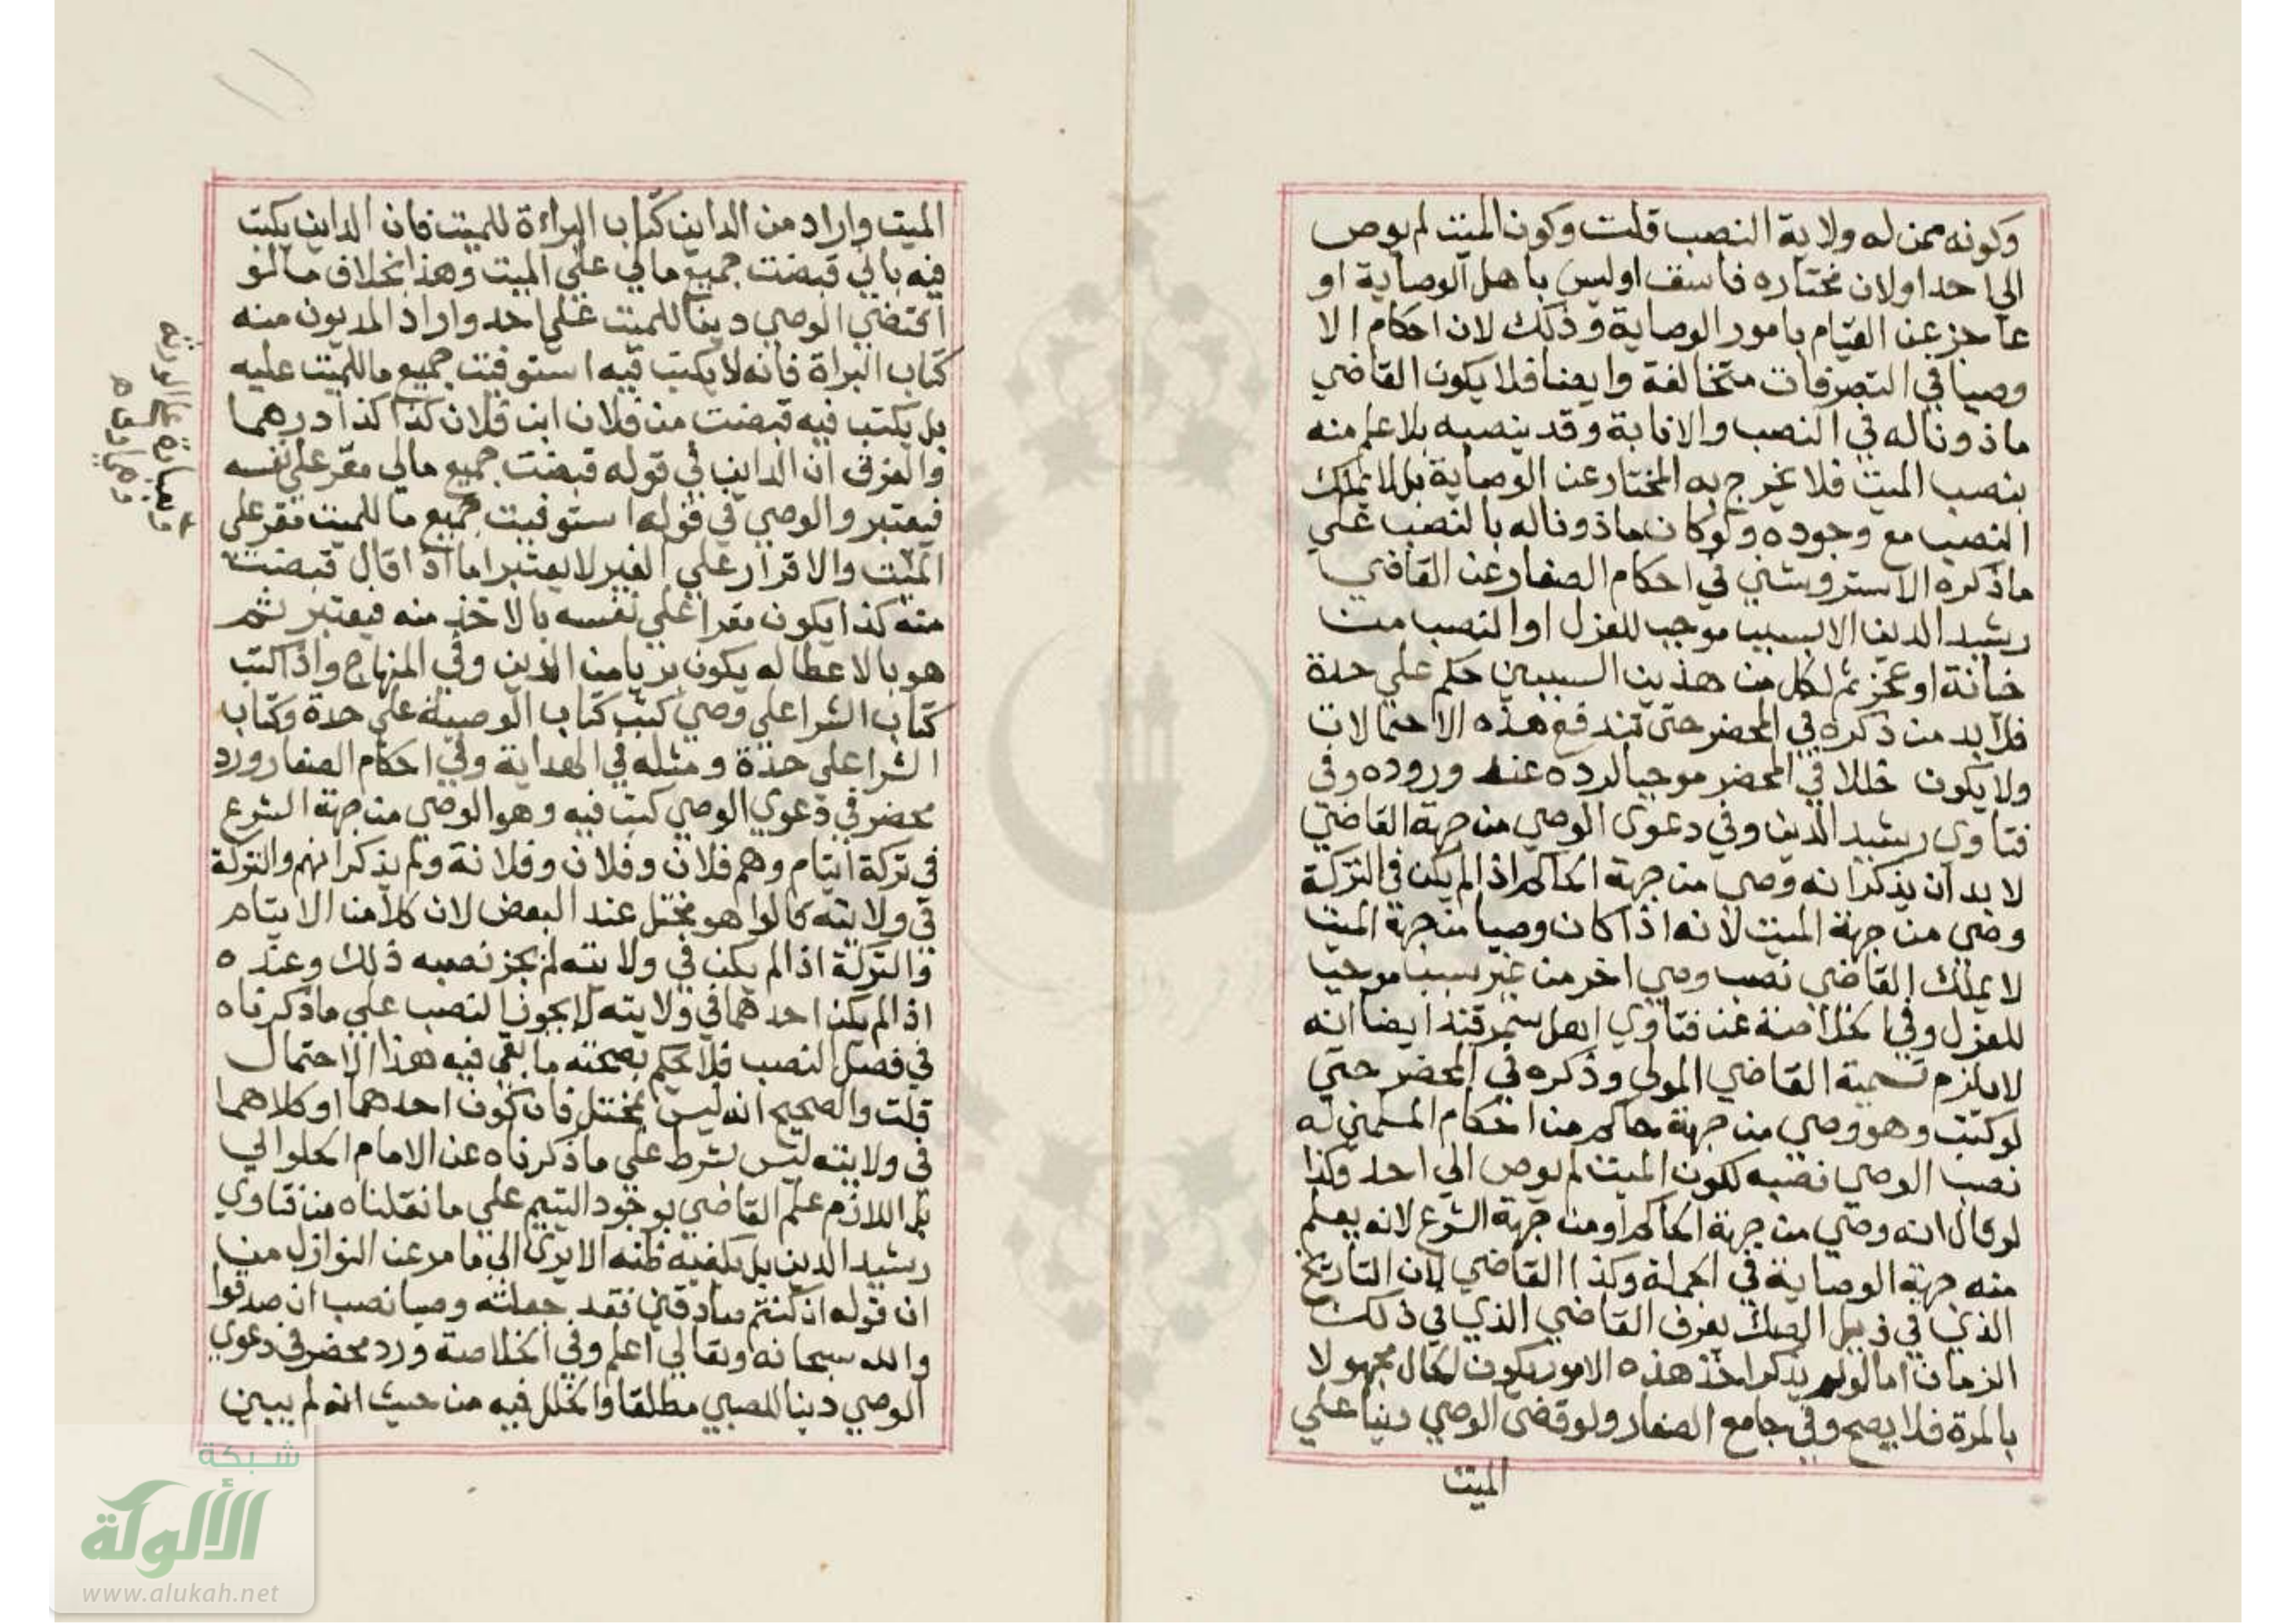 وكونه ممن له ولاية النصب قلت وكون الميت لم يوص
الي احد اولان مختاره فاسق اوليس باهل الوصاية او
عاجز عن القيام بامور الوصاية وذلك لان احكام الا
وصيا في التصرفات متخالفة وايضا فلا يكون القاضي
ماذوناله في النصب والانابة وقد ينصبه بلا علم منه
بنصب الميت فلا يخرج به المختار عن الوصاية بل لا يملك
النصب مع وجوده ولوكان ماذوناله بالنصب علي
ماذكره الاستروشني في احكام الصغار عن القاضي
رشيد الدين الا بسبب موجب للعزل او النصب من
خيانة او عجز ثم لكل من هذين السببين حكم علي حدة
فلا بد من ذكره في المحضر حتى تندفع هذه الاحتمالات
ولا يكون خللا في المحضر موجبا لرده عند وروده وفي
فتاوي رشيد الدين وفي دعوى الوصي من جهة القاضي
لا بد ان يذكر انه وصي من جهة الحاكم اذ الم يكن في التركة
وصي من جهة الميت لانه اذا كان وصيا من جهة الميت
لا يملك القاضي نصب وصي اخر من غير سبب موجب
للعزل وفي الخلاصة عن فتاوي اهل سمرقند ايضا انه
لا يلزم تسمية القاضي المولي وذكره في المحضر حتي
لوكتب وهو وصي من جهة حاكم من احكام المسلمين له
نصب الوصي نصبه لكون الميت لم يوص الي احد وكذا
لوقال انه وصي من جهة الحاكم اومن جهة الشرع لانه يعلم
منه جهة الوصاية في الجملة وكذا القاضي لان التاريخ
الذي في ذيل الصك يعرف القاضي الذي في ذلك
الزمان امالولم يذكر احد هذه الامور يكون الحال مجهولا
بالمرة فلا يصح وفي جامع الصغار ولوقضى الوصي دينا علي
الميت
الميت واراد من الداين كتاب البراءة للميت فان الداين يكتب
فيه باني قبضت جميع مالي علي الميت وهذا بخلاف مالو
اقتضي الوصي دينا للميت علي احد واراد المديون منه
كتاب البراة فانه لا يكتب فيه استوفيت جميع ماللميت عليه
بل يكتب فيه قبضت من فلان ابن فلان كذا كذا درهما
والفرق ان الداين في قوله قبضت جميع مالي مقر علي نفسه
فيعتبر والوصي في قوله استوفيت جميع ما للميت مقر علي
الميت والاقرار علي الغير لا يعتبر اما اذا قال قبضت
منه كذا يكون مقرا علي نفسه بالاخذ منه فيعتبر ثم
هو بالاعطا له يكون بريا من الدين وفي المنهاج واذا كتب
كتاب الشرا علي وصي كتب كتاب الوصية علي حدة وكتاب
الشرا علي حدة ومثله في الهداية وفي احكام الصغار ورد
محضر في دعوي الوصي كتب فيه وهو الوصي من جهة الشرع
في تركة ايتام وهم فلان وفلان وفلانة ولم يذكر انهم والتركة
في ولايته قالوا هو مختل عند البعض لان كلا من الايتام
والتركة اذ الم يكن في ولايته لم يجز نصبه ذلك وعنده
اذ الم يكن احدهما في ولايته لا يجوز النصب علي ماذكرناه
في فصل النصب فلا يحكم بصحته ما بقي فيه هذا الاحتمال
قلت والصحيح انه ليس بمختل فان كون احدهما او كلاهما
في ولايته ليس بشرط علي ماذكرناه عن الامام الحلوالي
بل اللازم علم القاضي بوجود اليتيم علي مانقلناه من فتاوي
رشيد الدين بل يكفيه ظنه الا يرى الي مامر عن النوازل من
ان قوله ان كنتم صادقين فقد جعلته وصيا نصب ان صدقوا
والله سبحانه وتعالي اعلم وفي الخلاصة ورد محضر في دعوي
الوصي دينا للصبي مطلقا والخلل فيه من حيث انه لم يبين
شبكة
الألوكة
www.alukah.net